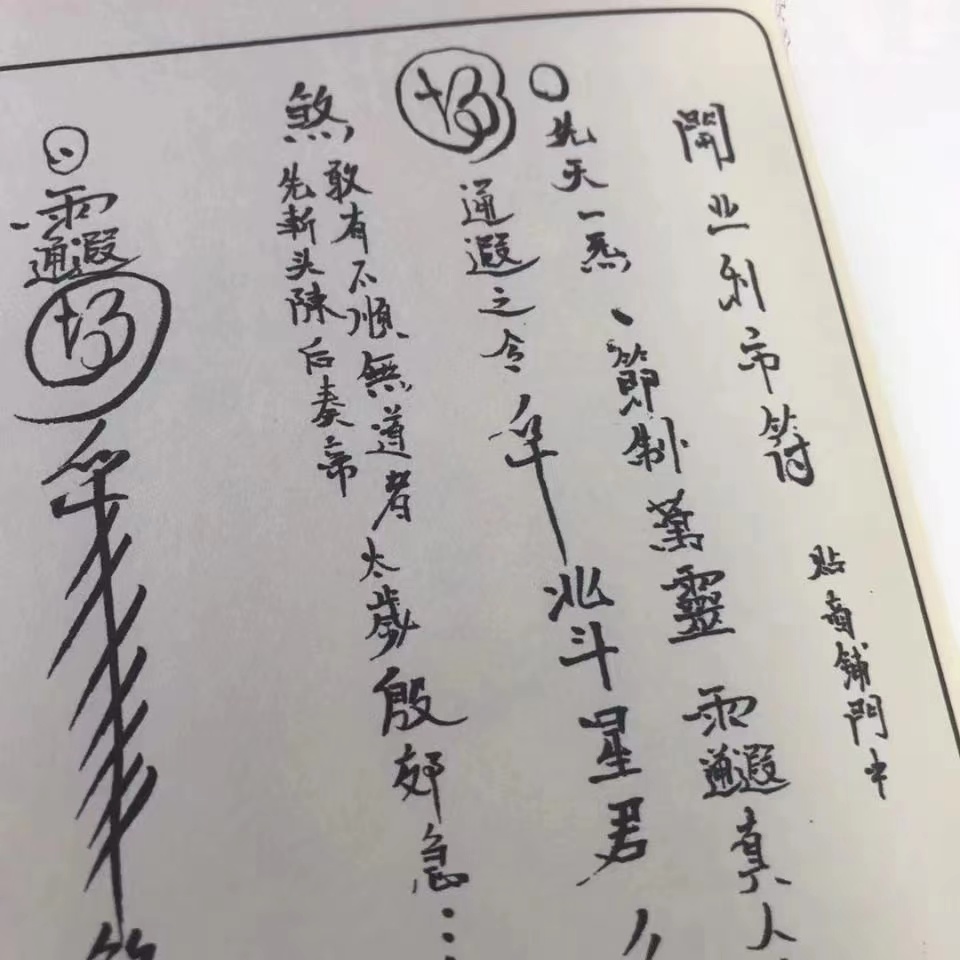 開业利市符
貼商鋪門中
先天一炁、節制萬靈
真人
通遐之令
北斗星君
煞
敢有不順無道者太歲殷郊急
先斬头陳后奏帝
通遐